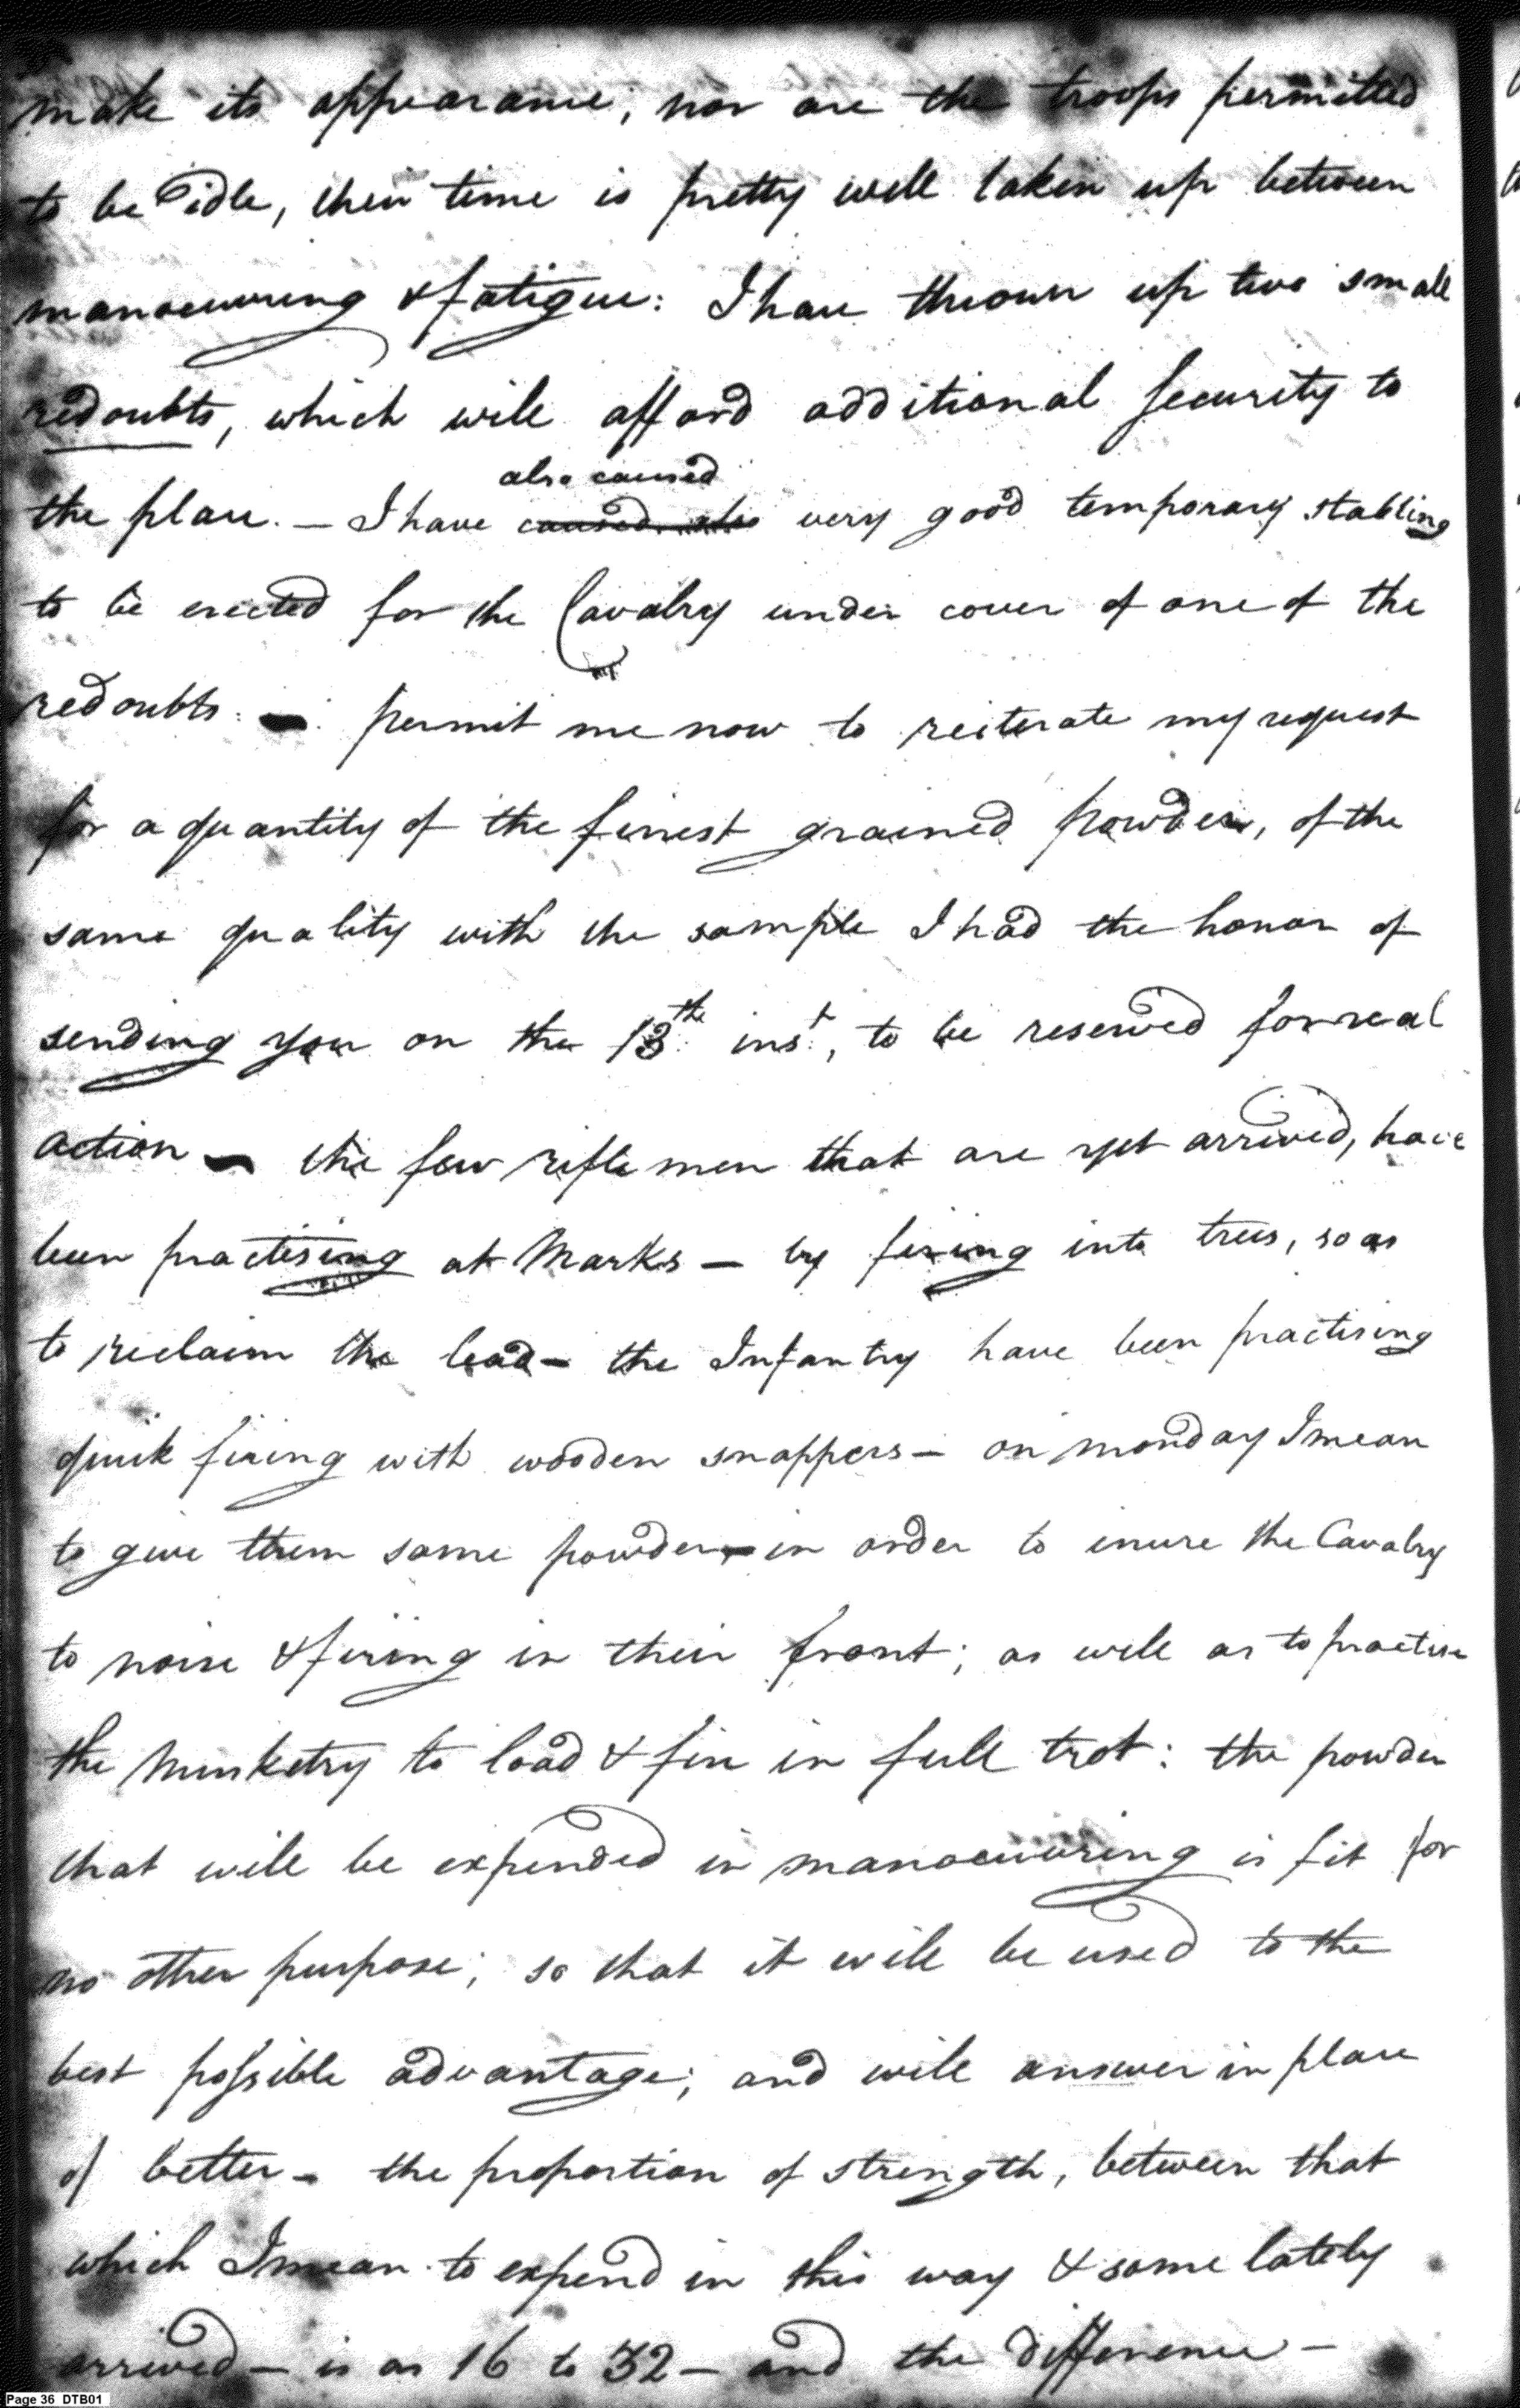 make its appearance; nor are the troops permitted
to be idle, their time is pretty well taken up between
manoeuvring & fatigue: I have thrown up two small
redoubts, which will afford additional security to
the place. — I have caused also very good temporary stabling
also caused
to be erected for the Cavalry under cover of one of the
redoubts. — permit me now to reiterate my request
for a quantity of the finest grained powder, of the
same quality with the sample I had the honor of
sending you on the 13th. inst., to be reserved for real
action — the few rifle men that are yet arrived, have
been practising at Marks — by firing into trees, so as
to reclaim the lead — the Infantry have been practising
quick firing with wooden snappers — on monday I mean
to give them some powder — in order to inure the Cavalry
to noise & firing in their front; as well as to practise
the Musketry to load & fire in full trot: the powder
that will be expended in manoeuvring is fit for
no other purpose; so that it will be used to the
best possible advantage; and will answer in place
of better — the proportion of strength, between that
which I mean to expend in this way & some lately
arrived — is as 16 to 32 — and the difference —
Page 36 DTB01